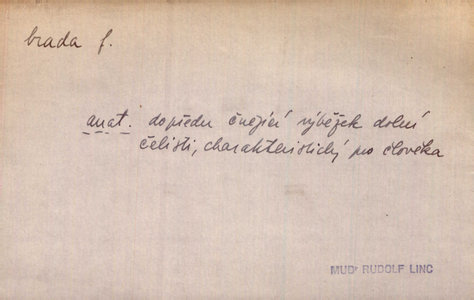 brada f.
anat. dopředu čnející výběžek dolní
čelisti, charakteristický pro člověka
MUDr RUDOLF LINC